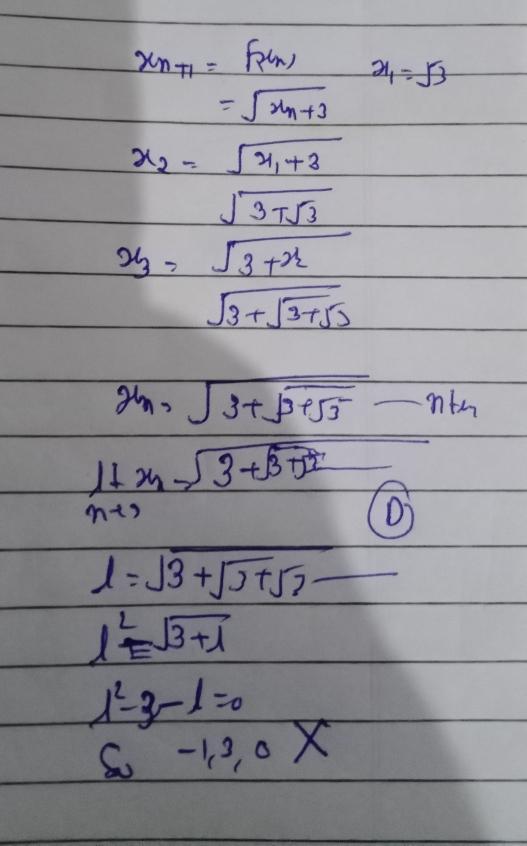 xn+1 = f(xn) x1 = √3
= √xn+3
x2 = √x1+3
√3+√3
x3 = √3+x2
√3+√3+√3
xn = √3+√3+√3 — nth
lt xn = √3+√3+√3 —
n→∞
D
l = √3+√3+√3 —
l² = √3+l
l²-3-l=0
So -1,3,0 X